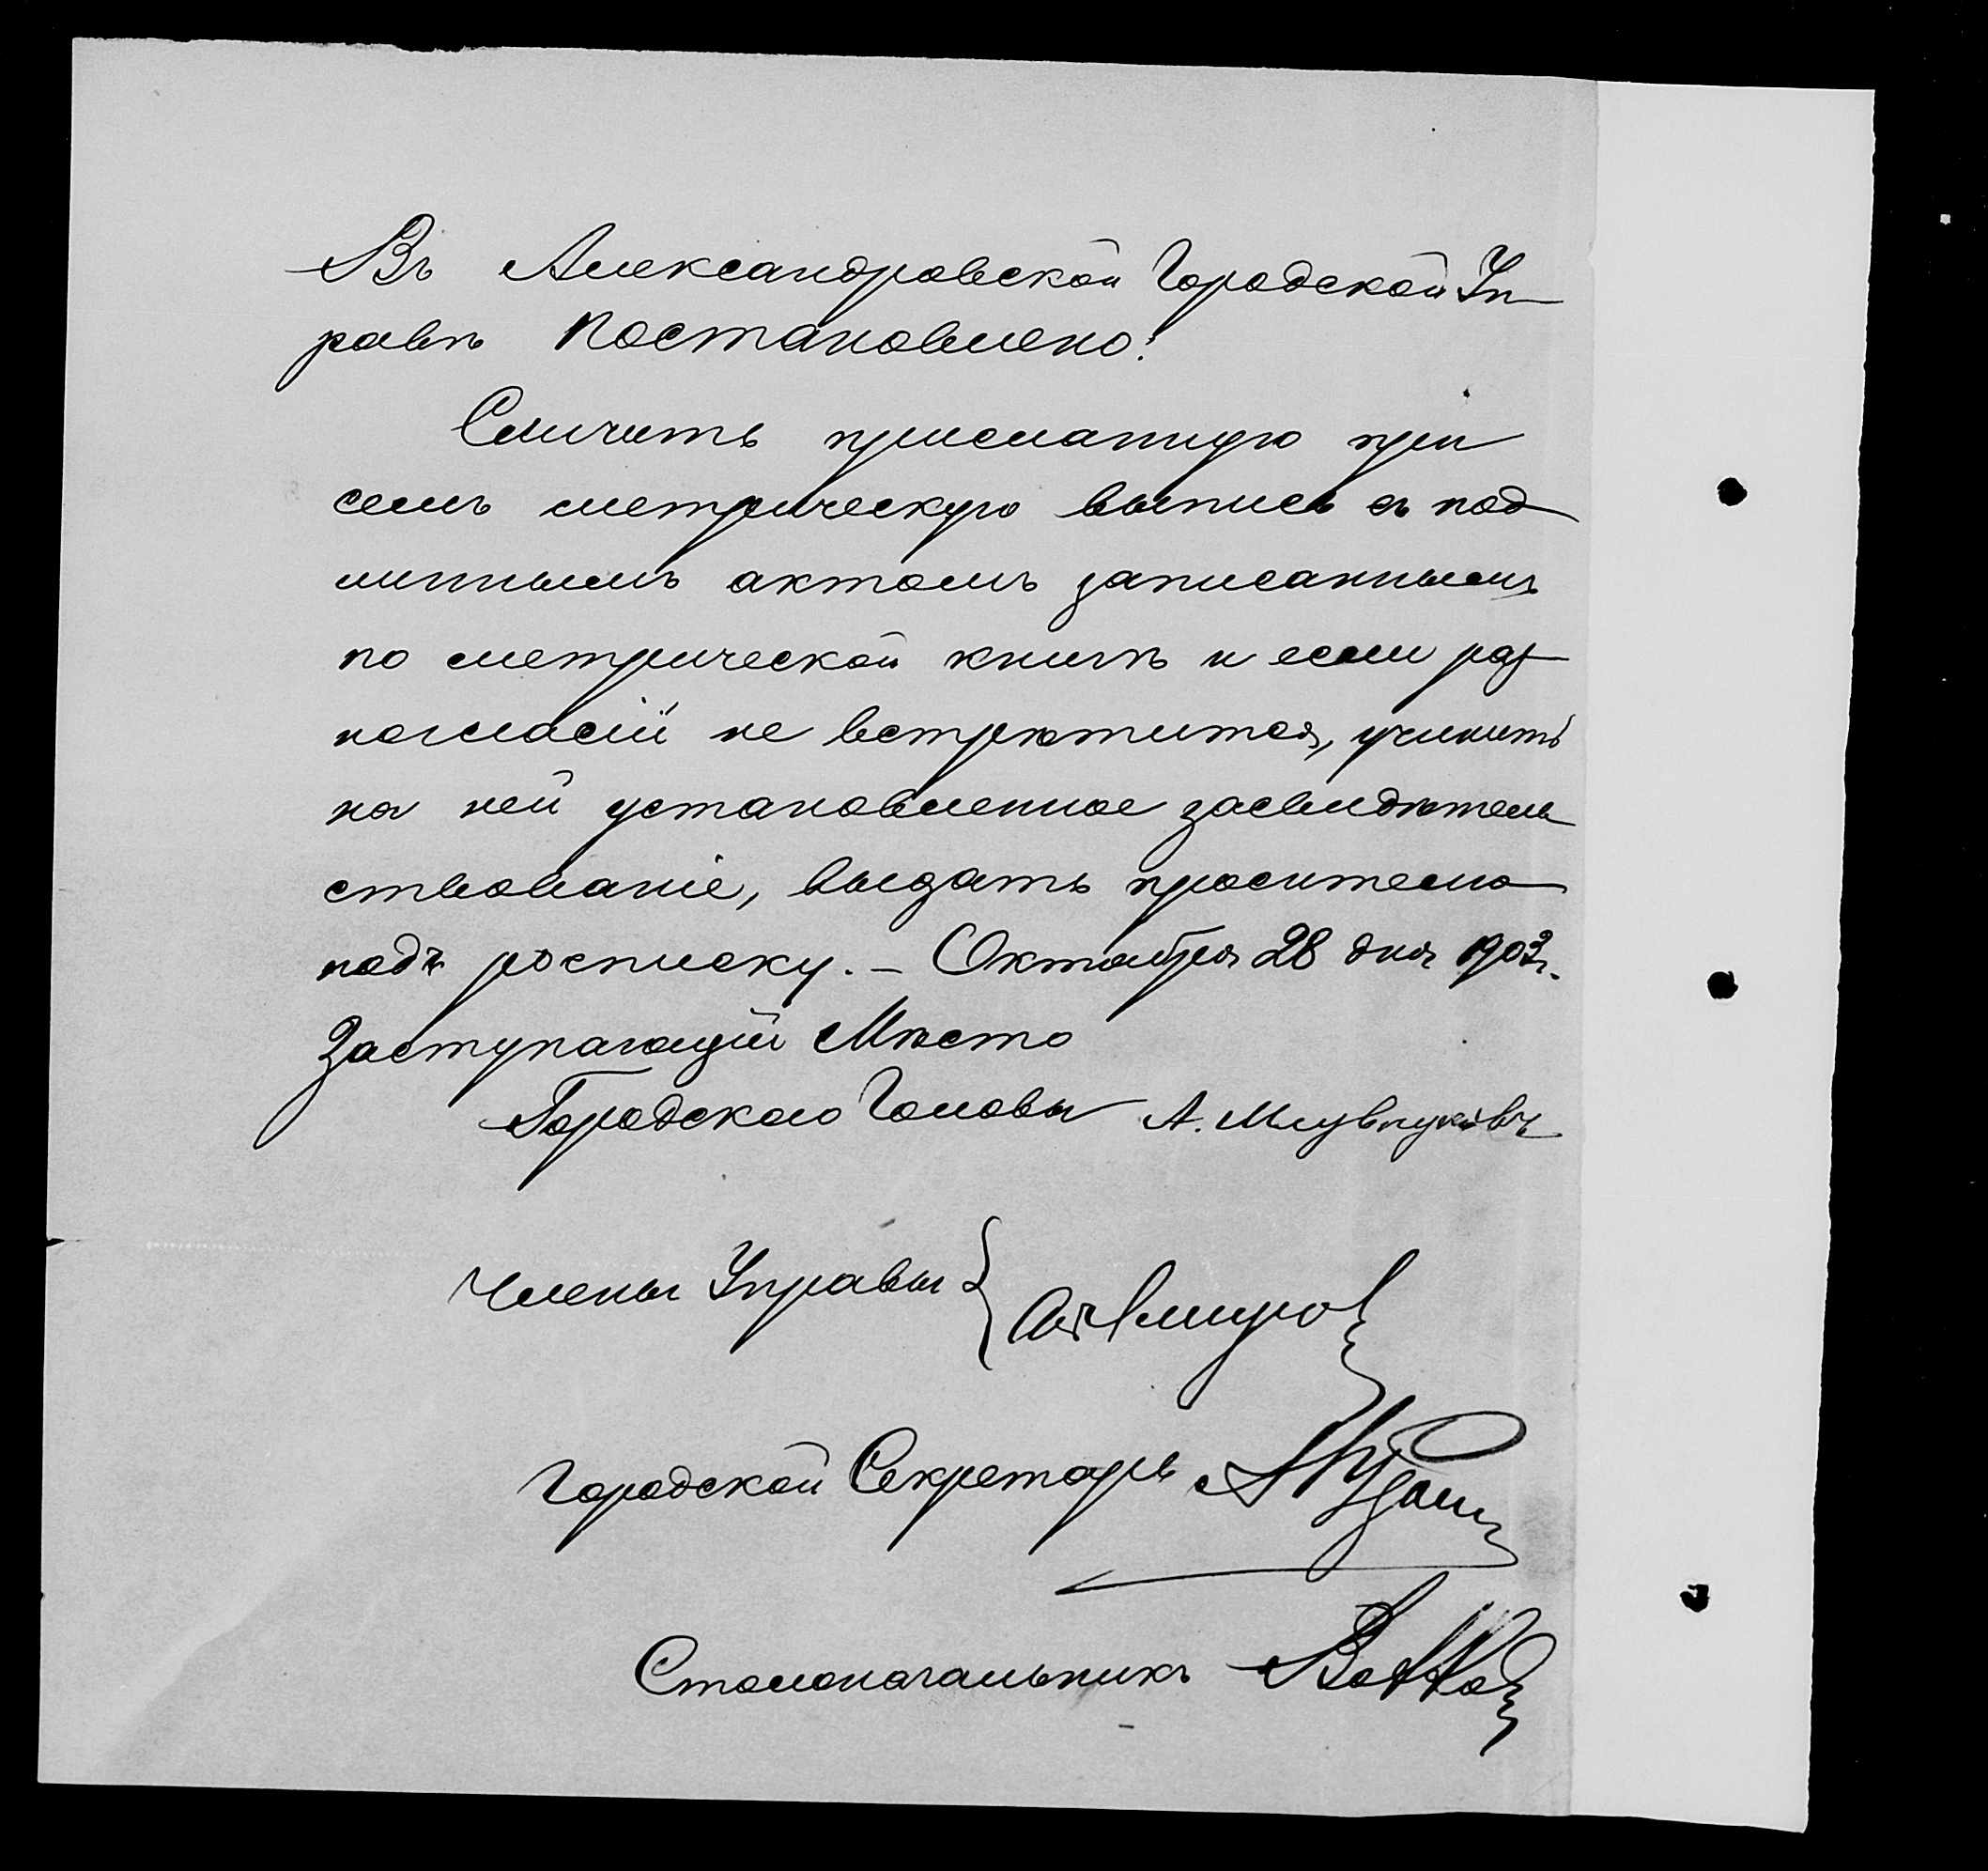 Въ Александровской Городской Уп
равѣ постановлено:
Сличить присланную при
семъ метрическую выпись съ под
линнымъ актомъ записаннымъ
по метрической книгѣ и если раз
ногласій не встрѣтится, учинить
на ней установленное засвидѣтель
ствованіе, выдать просителю
подъ росписку. — Октября 28 дня 1903 г.
Заступающій Мѣсто
Городского Головы А.
Члены Управы {
Городской Секретарь
Столоначальникъ